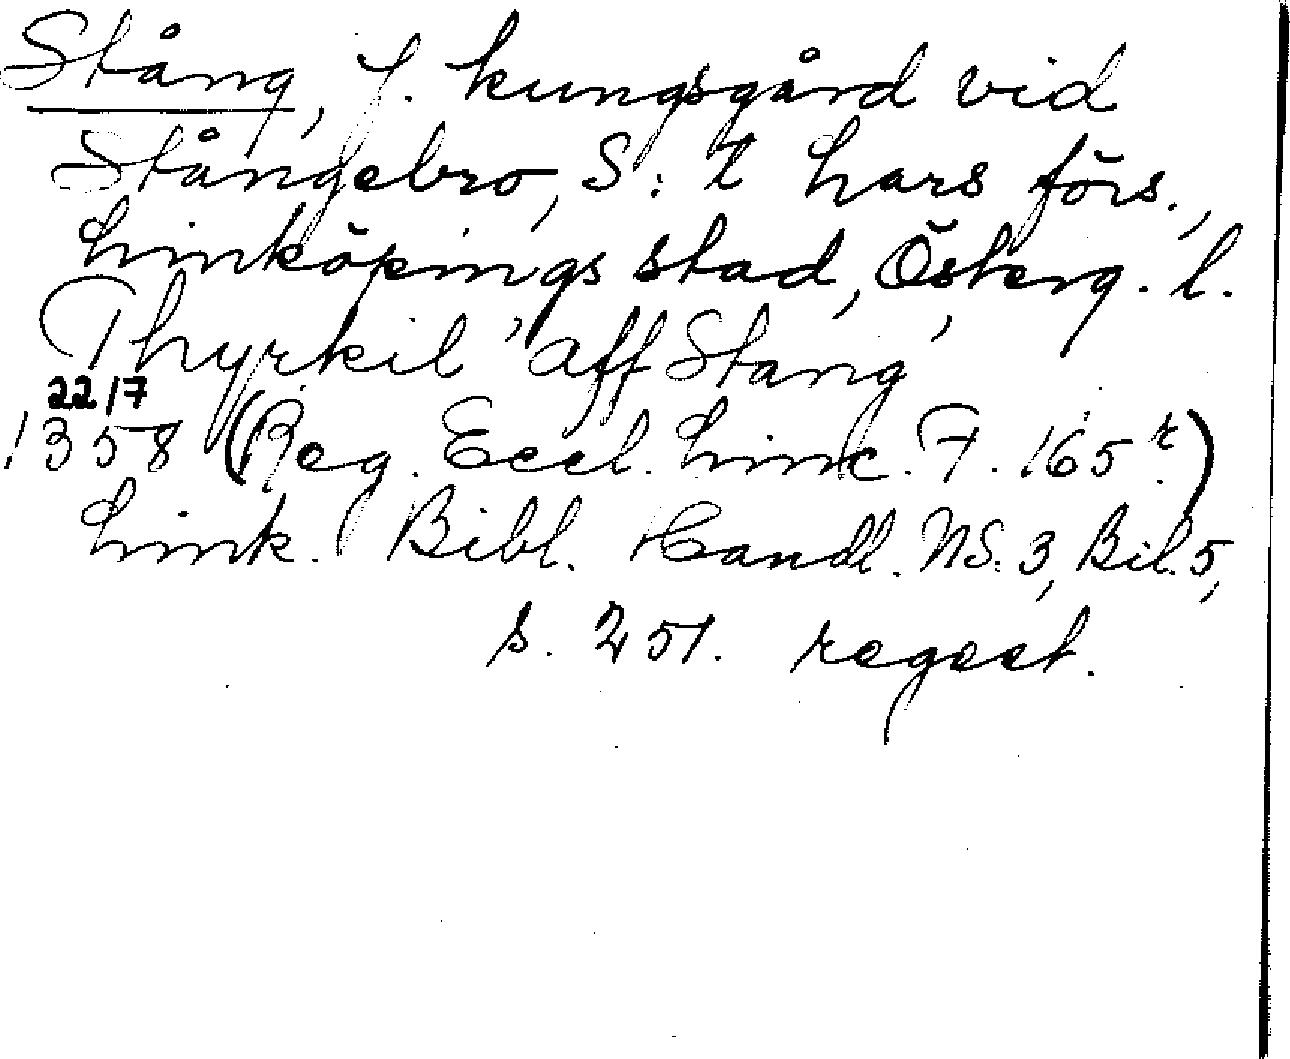 Stång, f. kungsgård vid
Stångebro, S:t Lars förs.,
Linköpings stad, Österg. l.
Thyrkil 'aff Stang'
22/7
1358 (Reg. Eccl. Linc. F. 165 r.)
Link. Bibl. Handl. NS. 3, Bil. 5,
s. 251. regest.